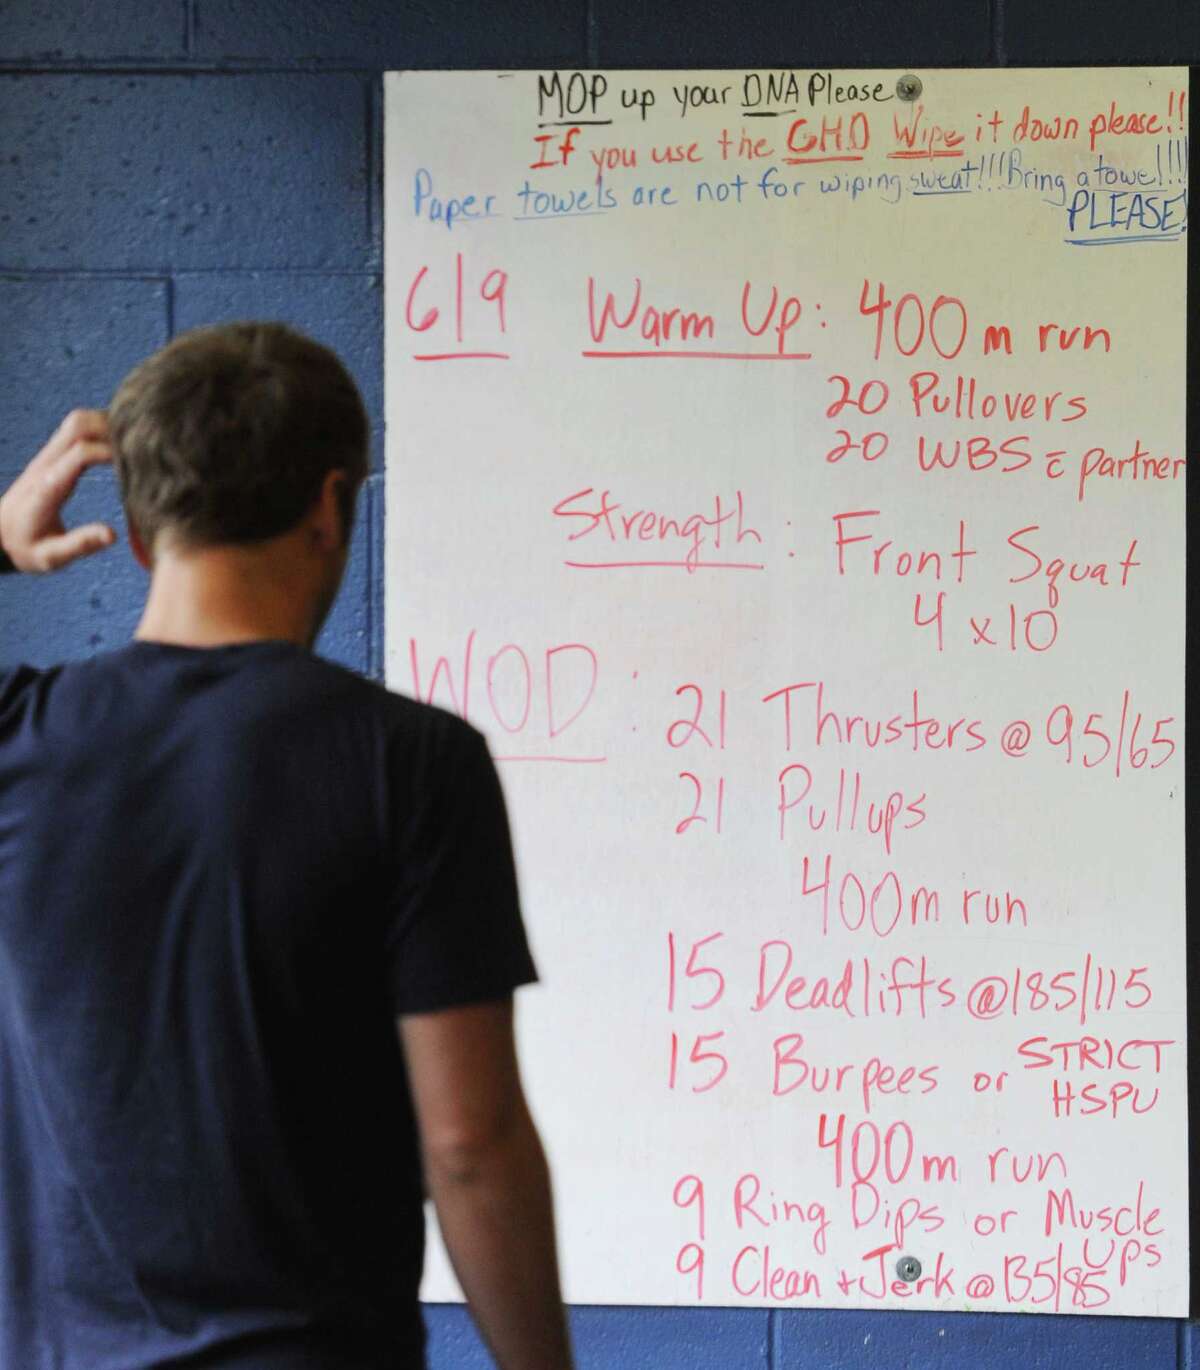 MOP up your DNA Please
If you use the GHD Wipe it down please!!
Paper towels are not for wiping sweat!!! Bring a towel!!!!
PLEASE!
6/9 Warm Up: 400m run
20 Pullovers
20 WBS c̄ partner
Strength: Front Squat
4 x 10
WOD: 21 Thrusters @ 95/65
21 Pullups
400m run
15 Deadlifts @ 185/115
15 Burpees or STRICT HSPU
400m run
9 Ring Dips or Muscle Ups
9 Clean + Jerk @ 135/85